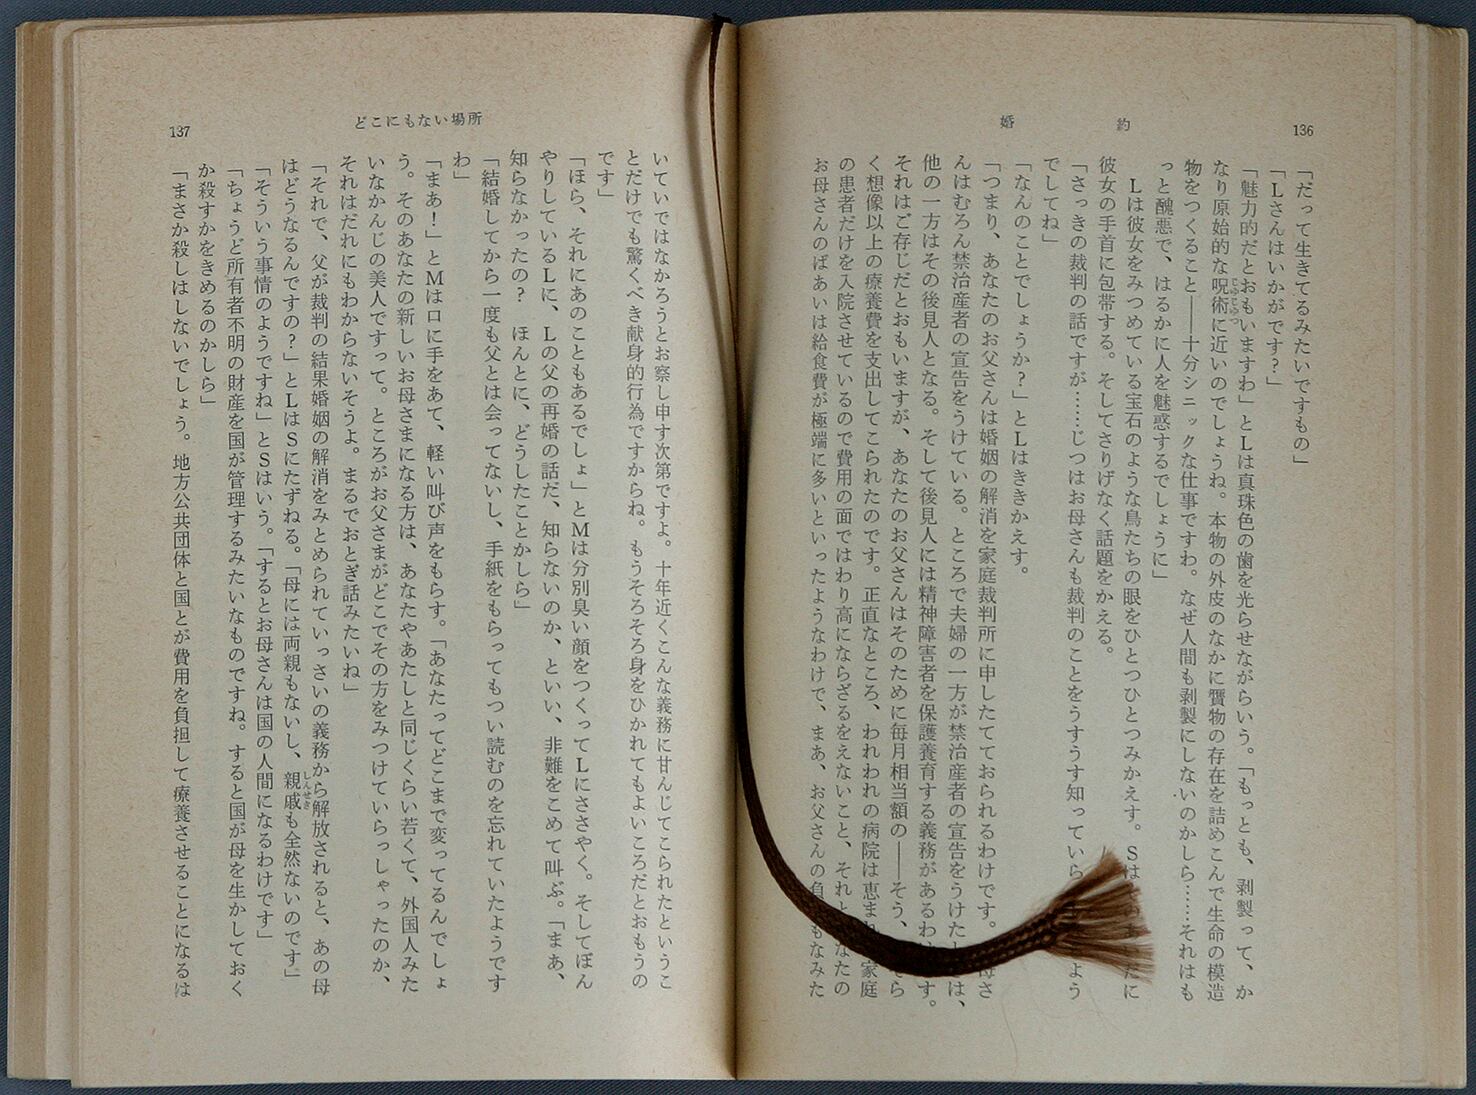 136
婚約
「だって生きてるみたいですもの」
「Lさんはいかがです?」
「魅力的だとおもいますわ」とLは真珠色の歯を光らせながらいう。「もっとも、剥製って、か
なり原始的な呪術に近いのでしょうね。本物の外皮のなかに贋物の存在を詰めこんで生命の模造
物をつくること――十分シニックな仕事ですわ。なぜ人間も剥製にしないのかしら……それはも
っと醜悪で、はるかに人を魅惑するでしょうに」
Lは彼女をみつめている宝石のような鳥たちの眼をひとつひとつみかえす。Sは
彼女の手首に包帯する。そしてさりげなく話題をかえる。
「さっきの裁判の話ですが……じつはお母さんも裁判のことをうすうす知っていら
でしてね」
「なんのことでしょうか?」とLはききかえす。
「つまり、あなたのお父さんは婚姻の解消を家庭裁判所に申したてておられるわけです。
んはむろん禁治産者の宣告をうけている。ところで夫婦の一方が禁治産者の宣告をうけた は、
他の一方はその後見人となる。そして後見人には精神障害者を保護養育する義務があるわ です。
それはご存じだとおもいますが、あなたのお父さんはそのために毎月相当額の――そう、 ら
く想像以上の療養費を支出してこられたのです。正直なところ、われわれの病院は恵まれ 家庭
の患者だけを入院させているので費用の面ではわり高にならざるをえないこと、それと なたの
お母さんのばあいは給食費が極端に多いといったようなわけで、まあ、お父さんの負 もなみた
137
どこにもない場所
いていではなかろうとお察し申す次第ですよ。十年近くこんな義務に甘んじてこられたというこ
とだけでも驚くべき献身的行為ですからね。もうそろそろ身をひかれてもよいころだとおもうの
です」
「ほら、それにあのこともあるでしょ」とMは分別臭い顔をつくってLにささやく。そしてぼん
やりしているLに、Lの父の再婚の話だ、知らないのか、といい、非難をこめて叫ぶ。「まあ、
知らなかったの? ほんとに、どうしたことかしら」
「結婚してから一度も父とは会ってないし、手紙をもらってもつい読むのを忘れていたようです
わ」
「まあ!」とMは口に手をあて、軽い叫び声をもらす。「あなたってどこまで変ってるんでしょ
う。そのあなたの新しいお母さまになる方は、あなたやあたしと同じくらい若くて、外国人みた
いなかんじの美人ですって。ところがお父さまがどこでその方をみつけていらっしゃったのか、
それはだれにもわからないそうよ。まるでおとぎ話みたいね」
「それで、父が裁判の結果婚姻の解消をみとめられていっさいの義務から解放されると、あの母
はどうなるんですの?」とLはSにたずねる。「母には両親もないし、親戚も全然ないのです」
「そういう事情のようですね」とSはいう。「するとお母さんは国の人間になるわけです」
「ちょうど所有者不明の財産を国が管理するみたいなものですね。すると国が母を生かしておく
か殺すかをきめるのかしら」
「まさか殺しはしないでしょう。地方公共団体と国とが費用を負担して療養させることになるは